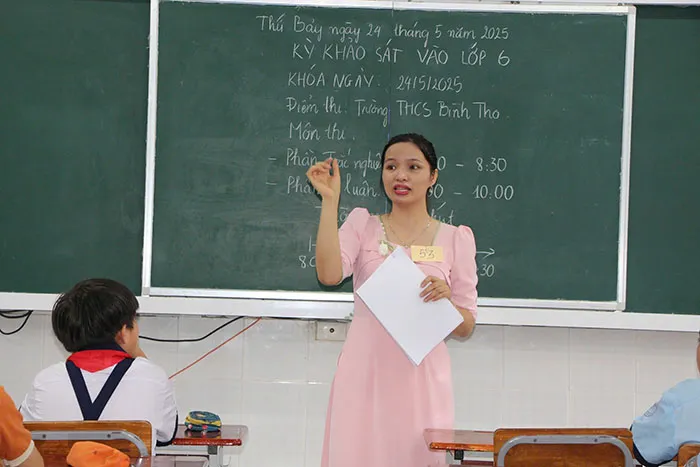 Thứ Bảy ngày 24 tháng 5 năm 2025
KỲ KHẢO SÁT VÀO LỚP 6
KHÓA NGÀY: 24/5/2025
Điểm thi: Trường THCS Bình Thọ.
Môn thi:
- Phần Trắc nghi - 8:30
- Phần luận - 10:00
53